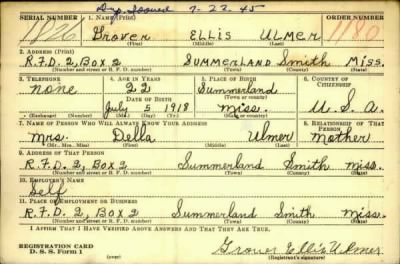 Dup. Issued 7-23-45
SERIAL NUMBER 1. Name (Print) ORDER NUMBER
1826 Grover ELLIS ULMER 1180
(First) (Middle) (Last)
2. Address (Print)
R.F.D. 2, Box 2 SUMMERLAND Smith Miss.
(Number and street or R. F. D. number) (Town) (County) (State)
3. Telephone 4. Age in Years 5. Place of Birth 6. Country of Citizenship
none 22 Summerland
Date of Birth (Town or county)
July 5 1918 Miss. U.S.A.
(Exchange) (Number) (Mo.) (Day) (Yr.) (State or country)
7. Name of Person Who Will Always Know Your Address 8. Relationship of That Person
Mrs. Della Ulmer Mother
(Mr., Mrs., Miss) (First) (Middle) (Last)
9. Address of That Person
R.F.D. 2, Box 2 Summerland Smith Miss.
(Number and street or R. F. D. number) (Town) (County) (State)
10. Employer's Name
Self
11. Place of Employment or Business
R.F.D. 2, Box 2 Summerland Smith Miss.
(Number and street or R. F. D. number) (Town) (County) (State)
I Affirm That I Have Verified Above Answers and That They Are True.
REGISTRATION CARD
D. S. S. Form 1 (over) Grover Ellis Ulmer
(Registrant's signature)